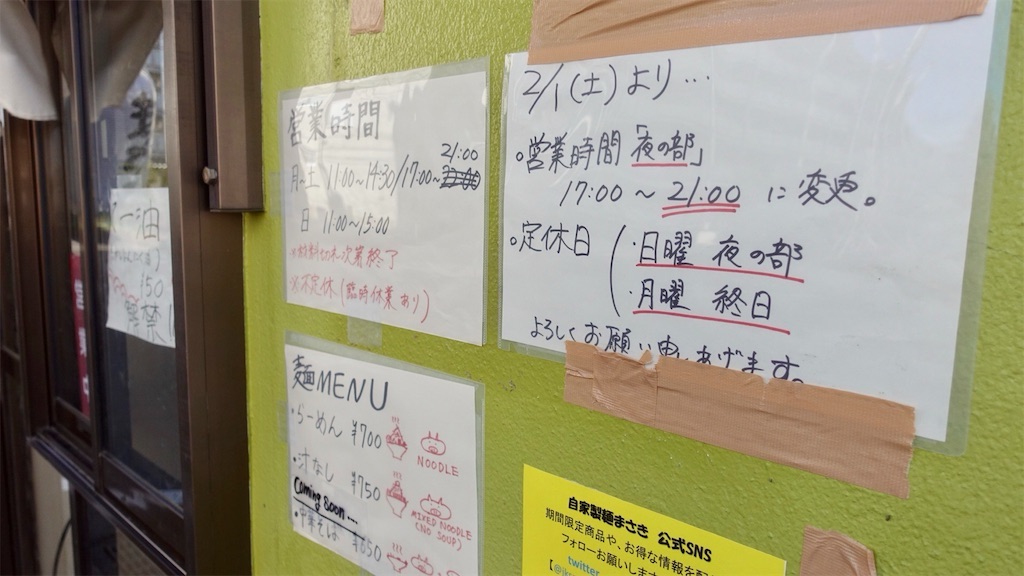 営業時間
月~土 11:00~14:30/17:00~21:00
日 11:00~15:00
※材料切れ次第終了
※不定休(臨時休業あり)
2/1(土)より…
。営業時間「夜の部」
17:00~21:00 に変更。
。定休日(・日曜 夜の部
・月曜 終日
よろしくお願い申しあげます。
麺MENU
・らーめん ¥700
NOODLE
・汁なし ¥750
MIXED NOODLE
(NO SOUP)
Coming Soon....
・中華そば ¥650
自家製麺まさき 公式SNS
期間限定商品や、お得な情報を配
フォローお願いしま
twitter
油
150
解禁!